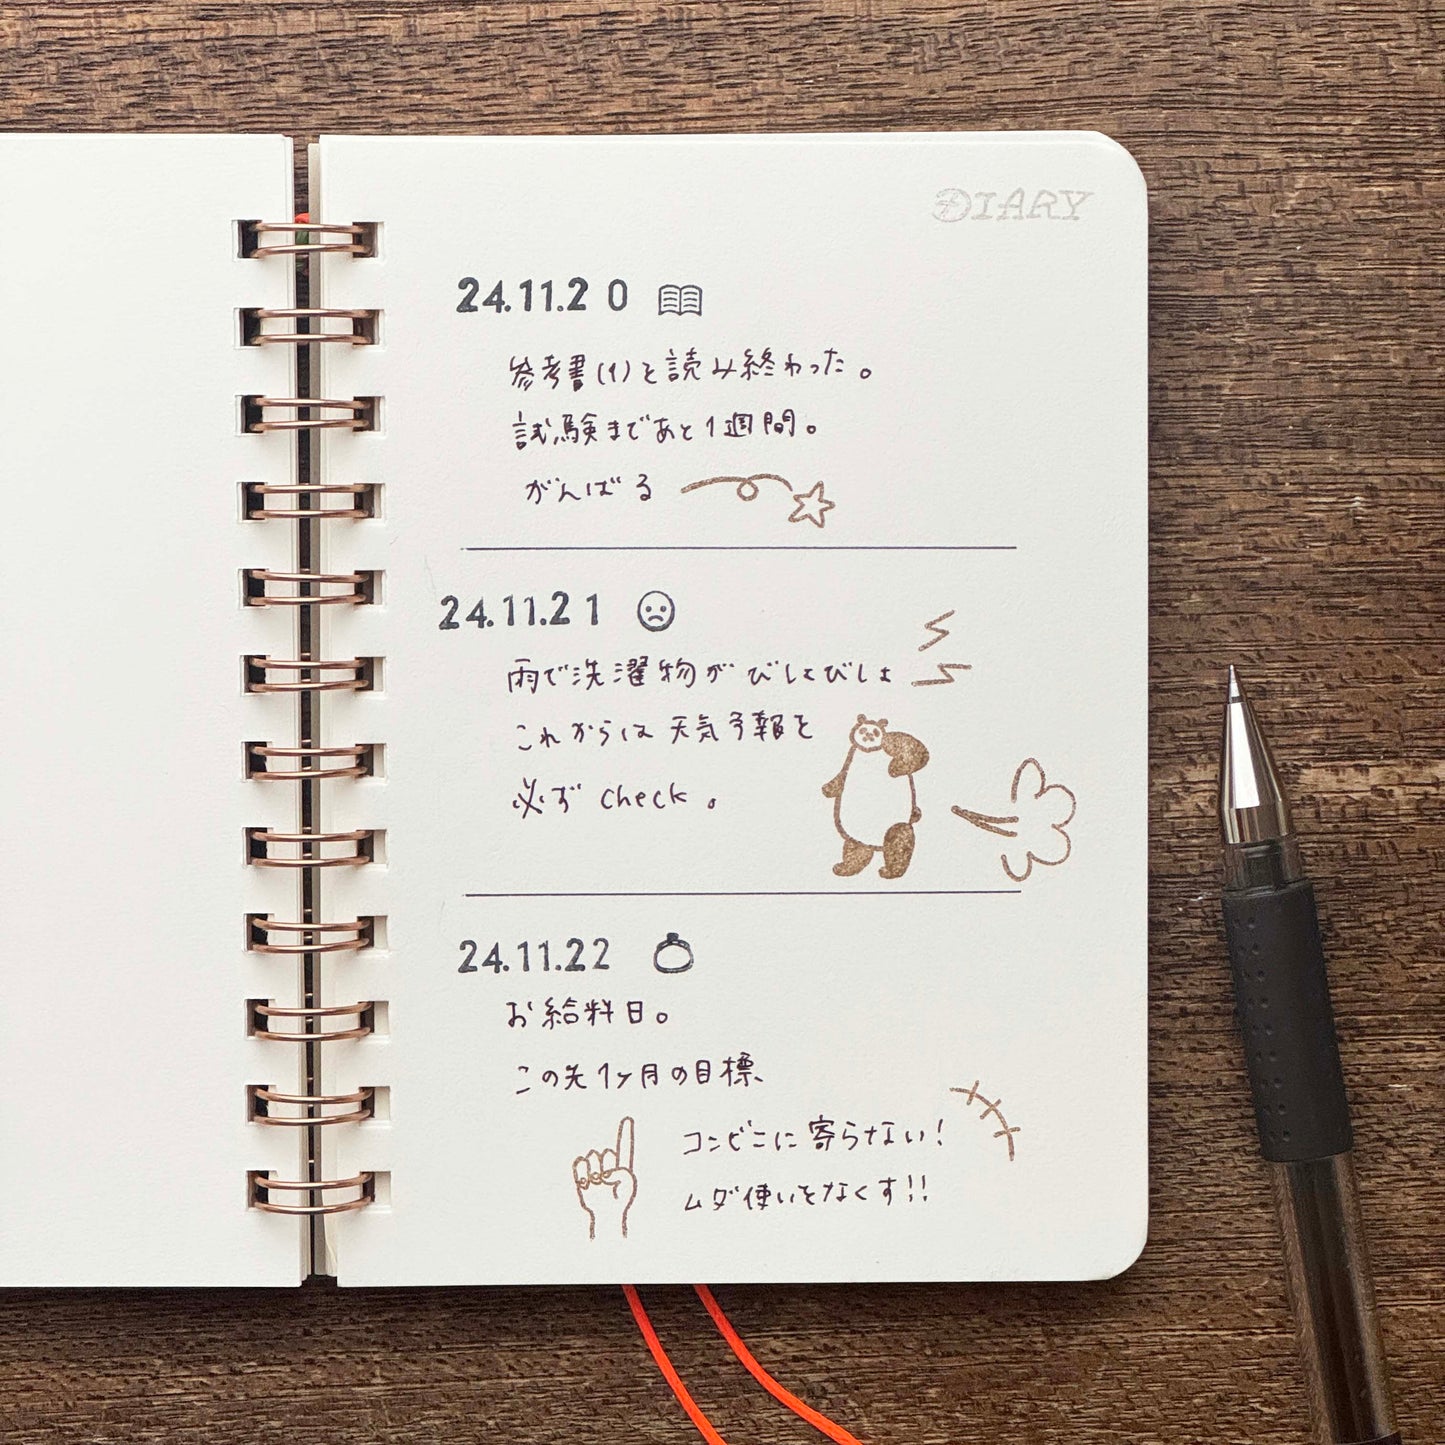 DIARY
24.11.20
参考書(1)を読み終わった。
試験まであと1週間。
がんばる
24.11.21
雨で洗濯物がびしょびしょ
これからは天気予報を
必ずcheck。
24.11.22
お給料日。
この先1ヶ月の目標、
コンビニに寄らない!
ムダ使いをなくす!!